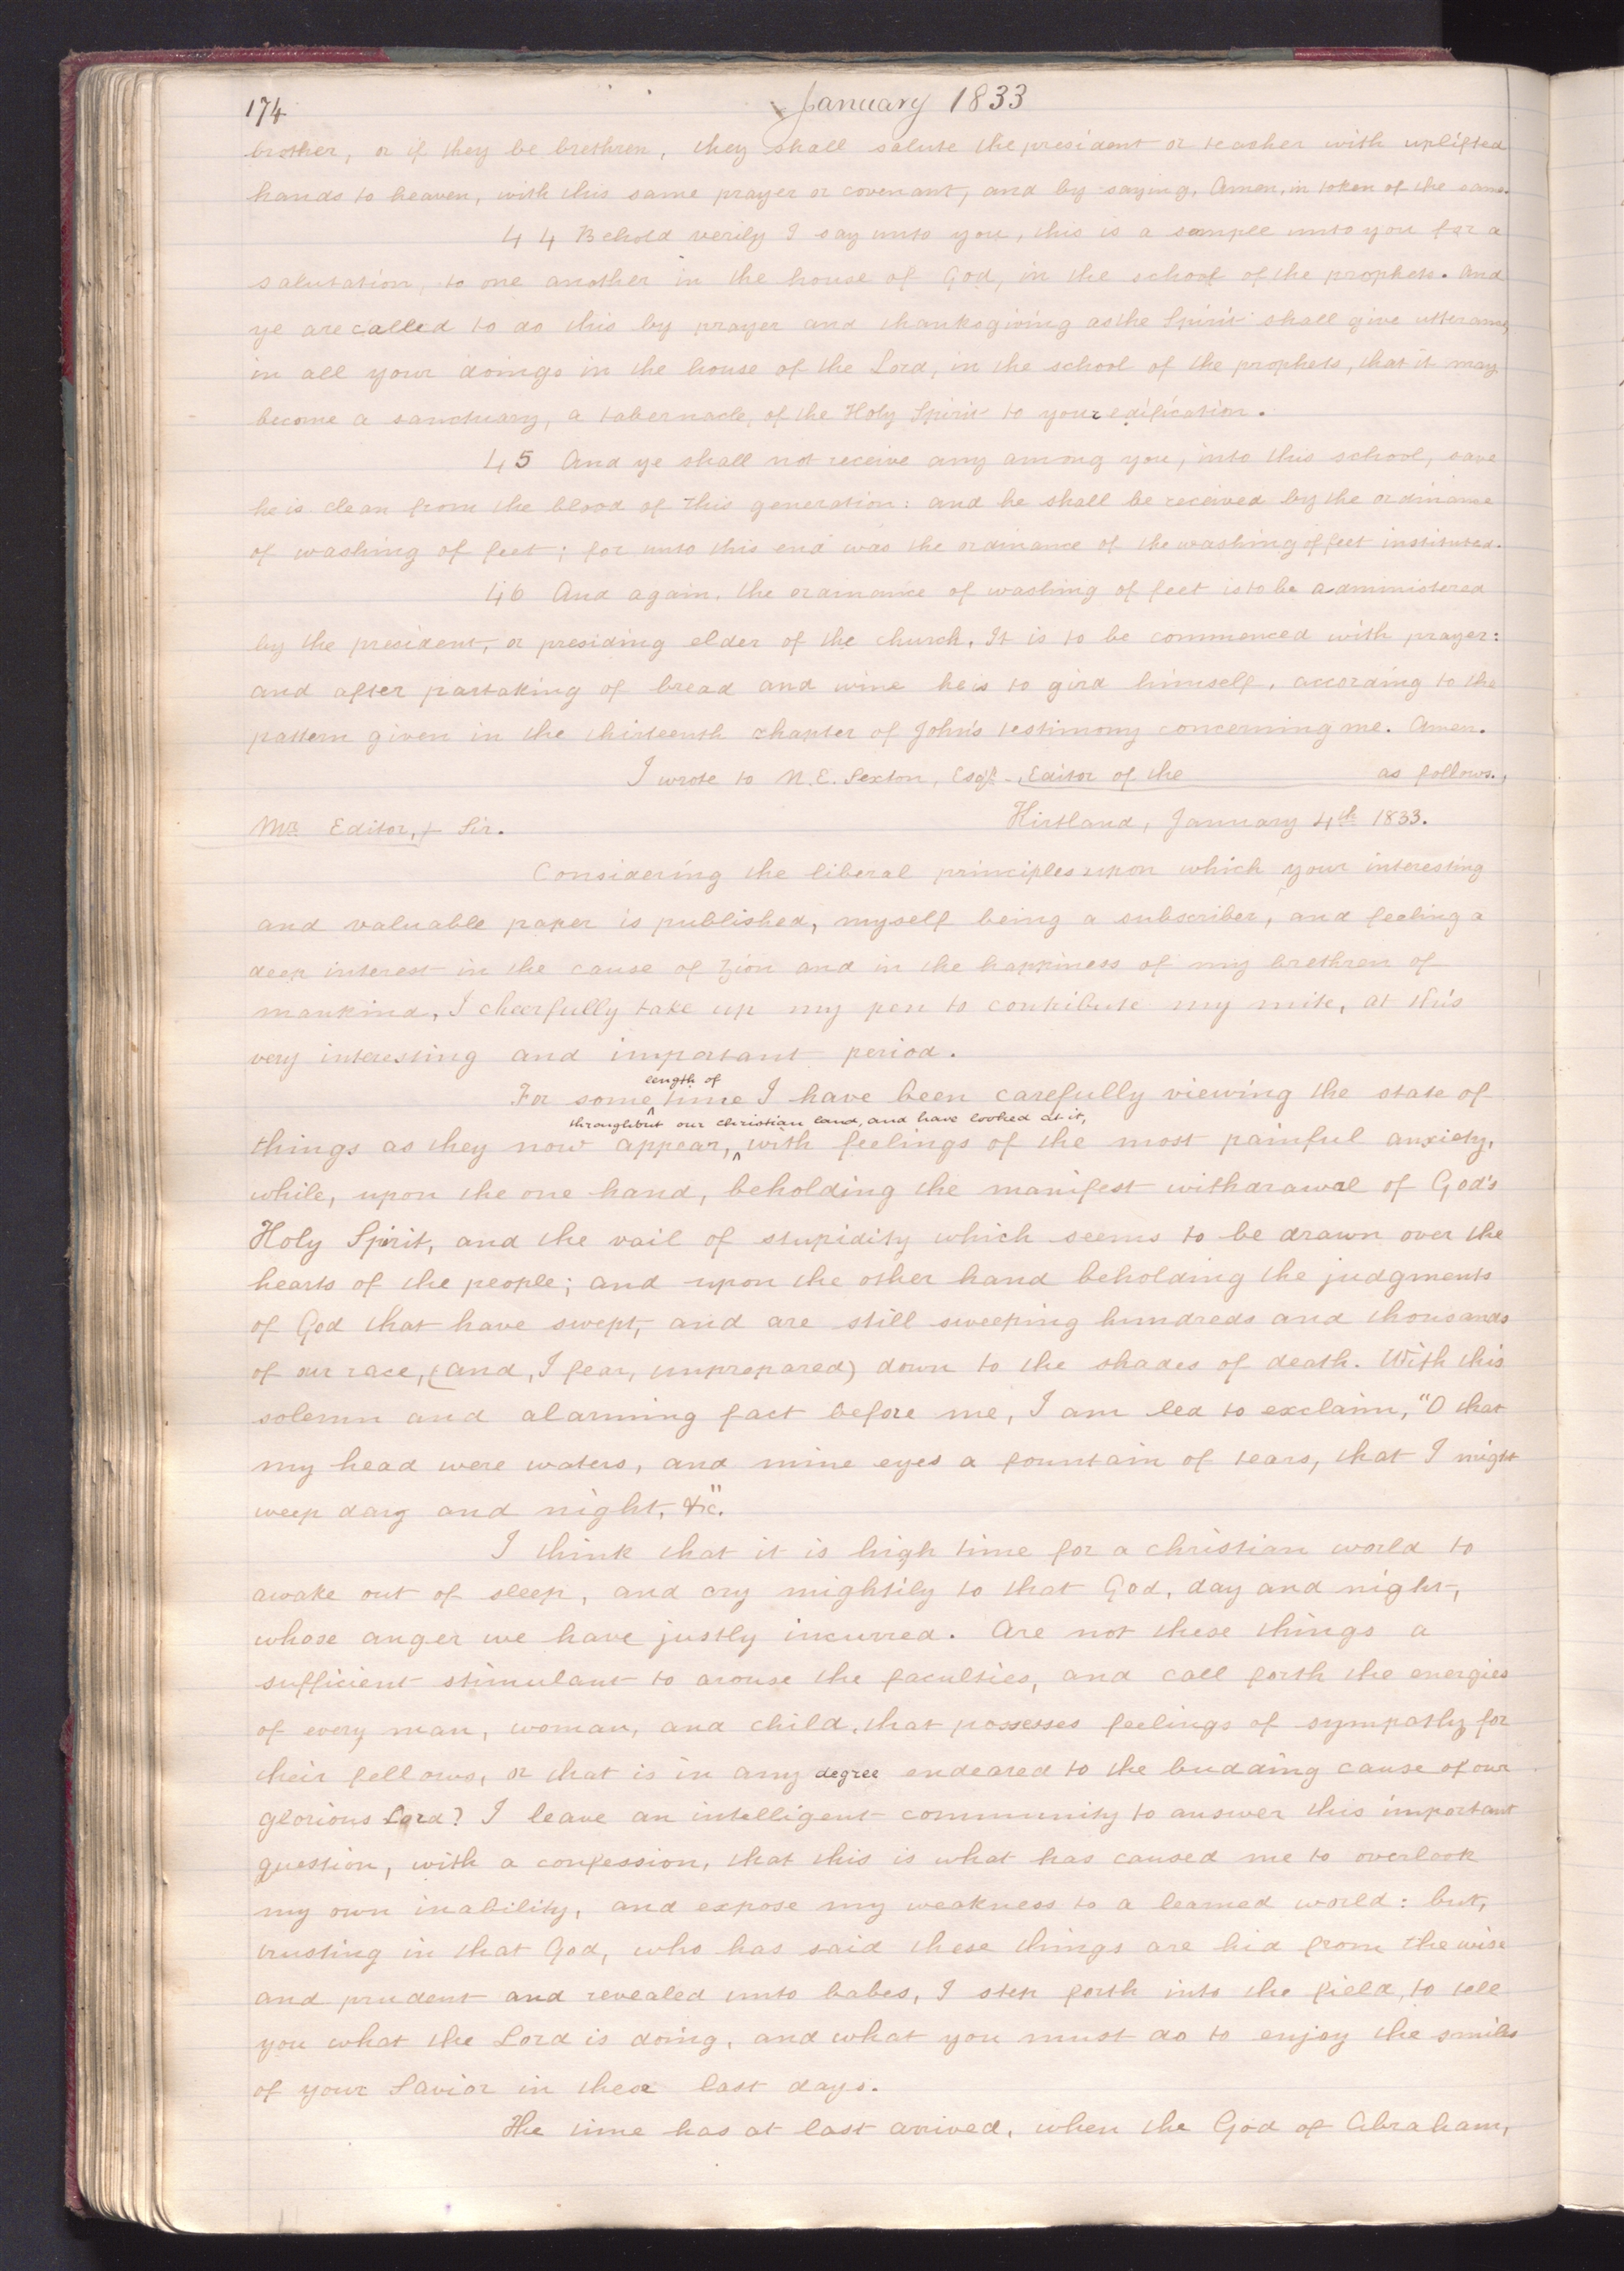 174
January 1833
brother, or if they be brethren, they shall salute the president or teacher with uplifted
hands to heaven, with this same prayer or covenant, and by saying, Amen, in token of the same.
44 Behold verily I say unto you, this is a sample unto you for a
salutation, to one another in the house of God, in the school of the prophets. And
ye are called to do this by prayer and thanksgiving as the Spirit shall give utterance,
in all your doings in the house of the Lord, in the school of the prophets, that it may
become a sanctuary, a tabernacle, of the Holy Spirit to your edification.
45 And ye shall not receive any among you, into this school, save
he is clean from the blood of this generation: and he shall be received by the ordinance
of washing of feet; for unto this end was the ordinance of the washing of feet instituted.
46 And again, the ordinance of washing of feet is to be administered
by the president, or presiding elder of the church. It is to be commenced with prayer:
and after partaking of bread and wine he is to gird himself, according to the
pattern given in the thirteenth chapter of John's testimony concerning me. Amen.
I wrote to N. E. Sexton, Esqr., Editor of the as follows.,
Kirtland, January 4th 1833.
Mr. Editor, + Sir.
Considering the liberal principles upon which your interesting
and valuable paper is published, myself being a subscriber, and feeling a
deep interest in the cause of Zion and in the happiness of my brethren of
mankind, I cheerfully take up my pen to contribute my mite, at this
very interesting and important period.
length of
For some ^ time I have been carefully viewing the state of
throughout our christian land, and have looked at it,
things as they now appear, ^ with feelings of the most painful anxiety,
while, upon the one hand, beholding the manifest withdrawal of God's
Holy Spirit, and the vail of stupidity which seems to be drawn over the
hearts of the people; and upon the other hand beholding the judgments
of God that have swept, and are still sweeping hundreds and thousands
of our race, (and, I fear, unprepared) down to the shades of death. With this
solemn and alarming fact before me, I am led to exclaim, "O that
my head were waters, and mine eyes a fountain of tears, that I might
weep day and night, &c."
I think that it is high time for a christian world to
awake out of sleep, and cry mightily to that God, day and night,
whose anger we have justly incurred. Are not these things a
sufficient stimulant to arouse the faculties, and call forth the energies
of every man, woman, and child, that possesses feelings of sympathy for
their fellows, or that is in any degree endeared to the budding cause of our
glorious Lord? I leave an intelligent community to answer this important
question, with a confession, that this is what has caused me to overlook
my own inability, and expose my weakness to a learned world: but,
trusting in that God, who has said these things are hid from the wise
and prudent and revealed unto babes, I step forth into the field, to tell
you what the Lord is doing, and what you must do to enjoy the smiles
of your Savior in these last days.
The time has at last arrived, when the God of Abraham,